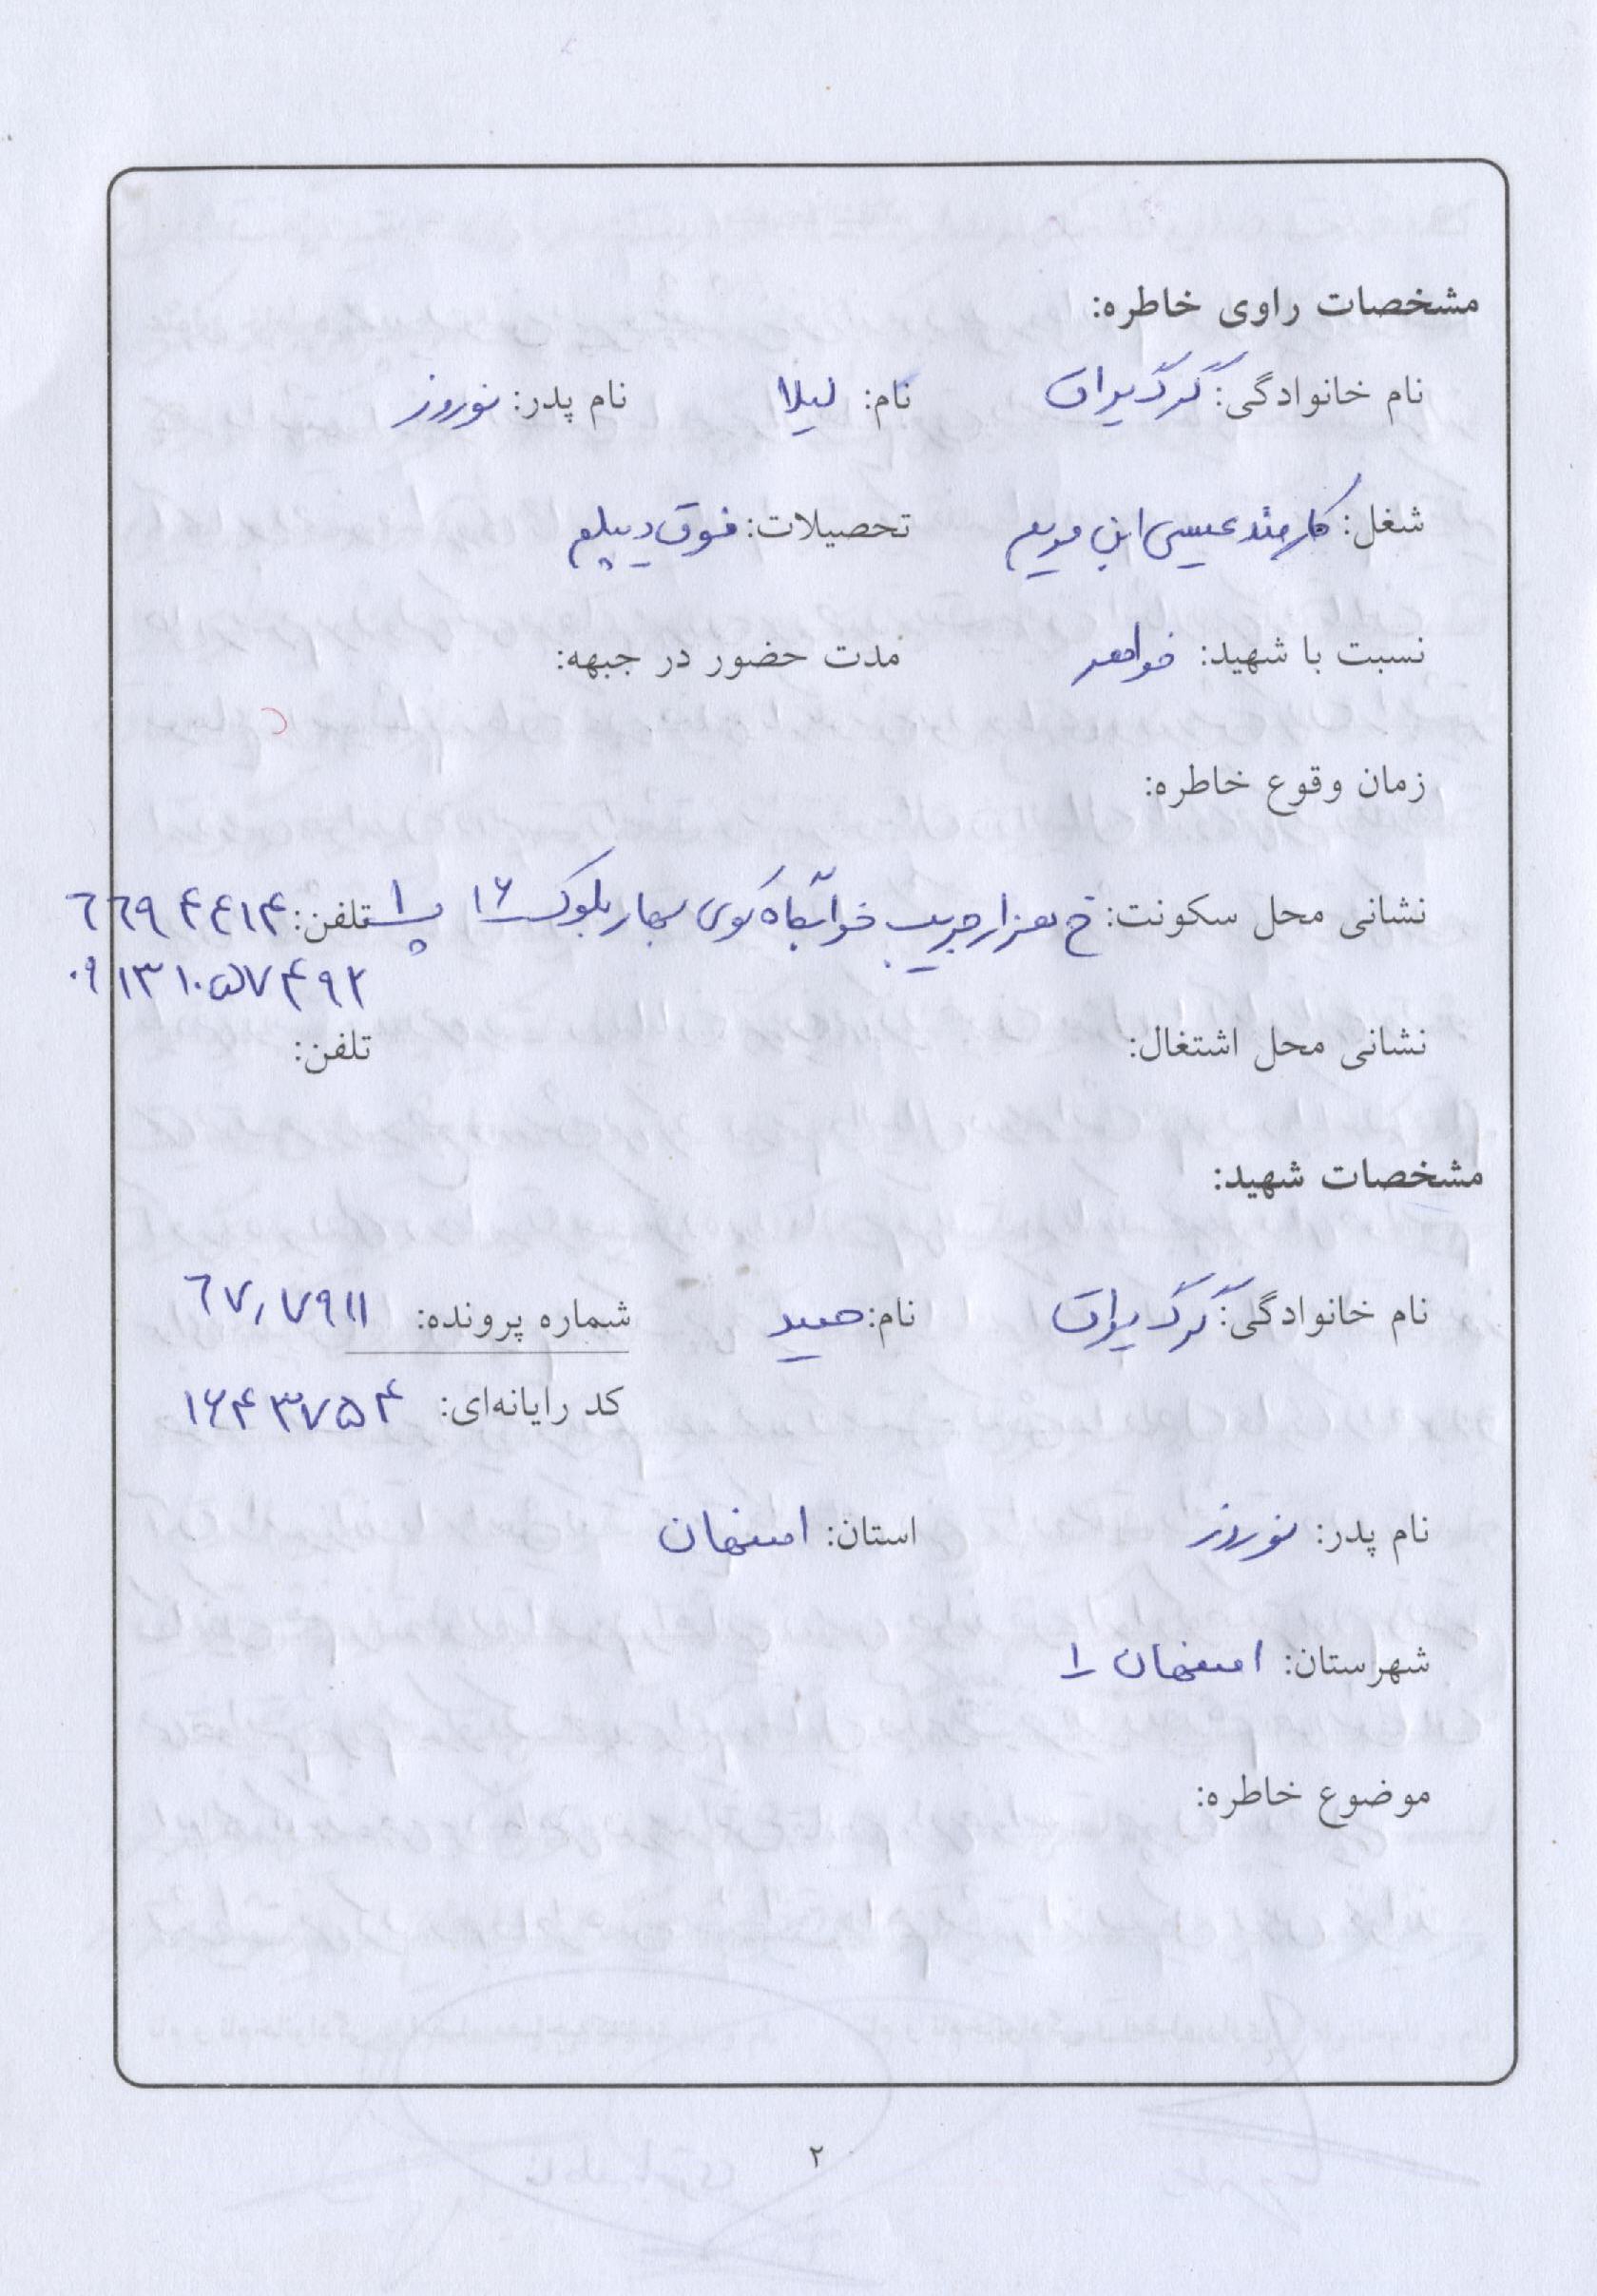 مشخصات راوی خاطره:
نام خانوادگی: گرگ یراق نام: لیلا نام پدر: نوروز
شغل: کارمند عیسی ابن مریم تحصیلات: فوق دیپلم
نسبت با شهید: خواهر مدت حضور در جبهه:
زمان وقوع خاطره:
نشانی محل سکونت: خ هزار جریب خوابگاه کوی بهار بلوک ۱۶ پ ۱ تلفن: ۶۶۹۴۴۱۴
۰۹۱۳۱۰۵۷۴۹۲
نشانی محل اشتغال: تلفن:
مشخصات شهید:
نام خانوادگی: گرگ یراق نام: حمید شماره پرونده: ۶۷٫۷۹۱۱
کد رایانه‌ای: ۱۶۴۳۷۵۴
نام پدر: نوروز استان: اصفهان
شهرستان: اصفهان ۱
موضوع خاطره:
۲